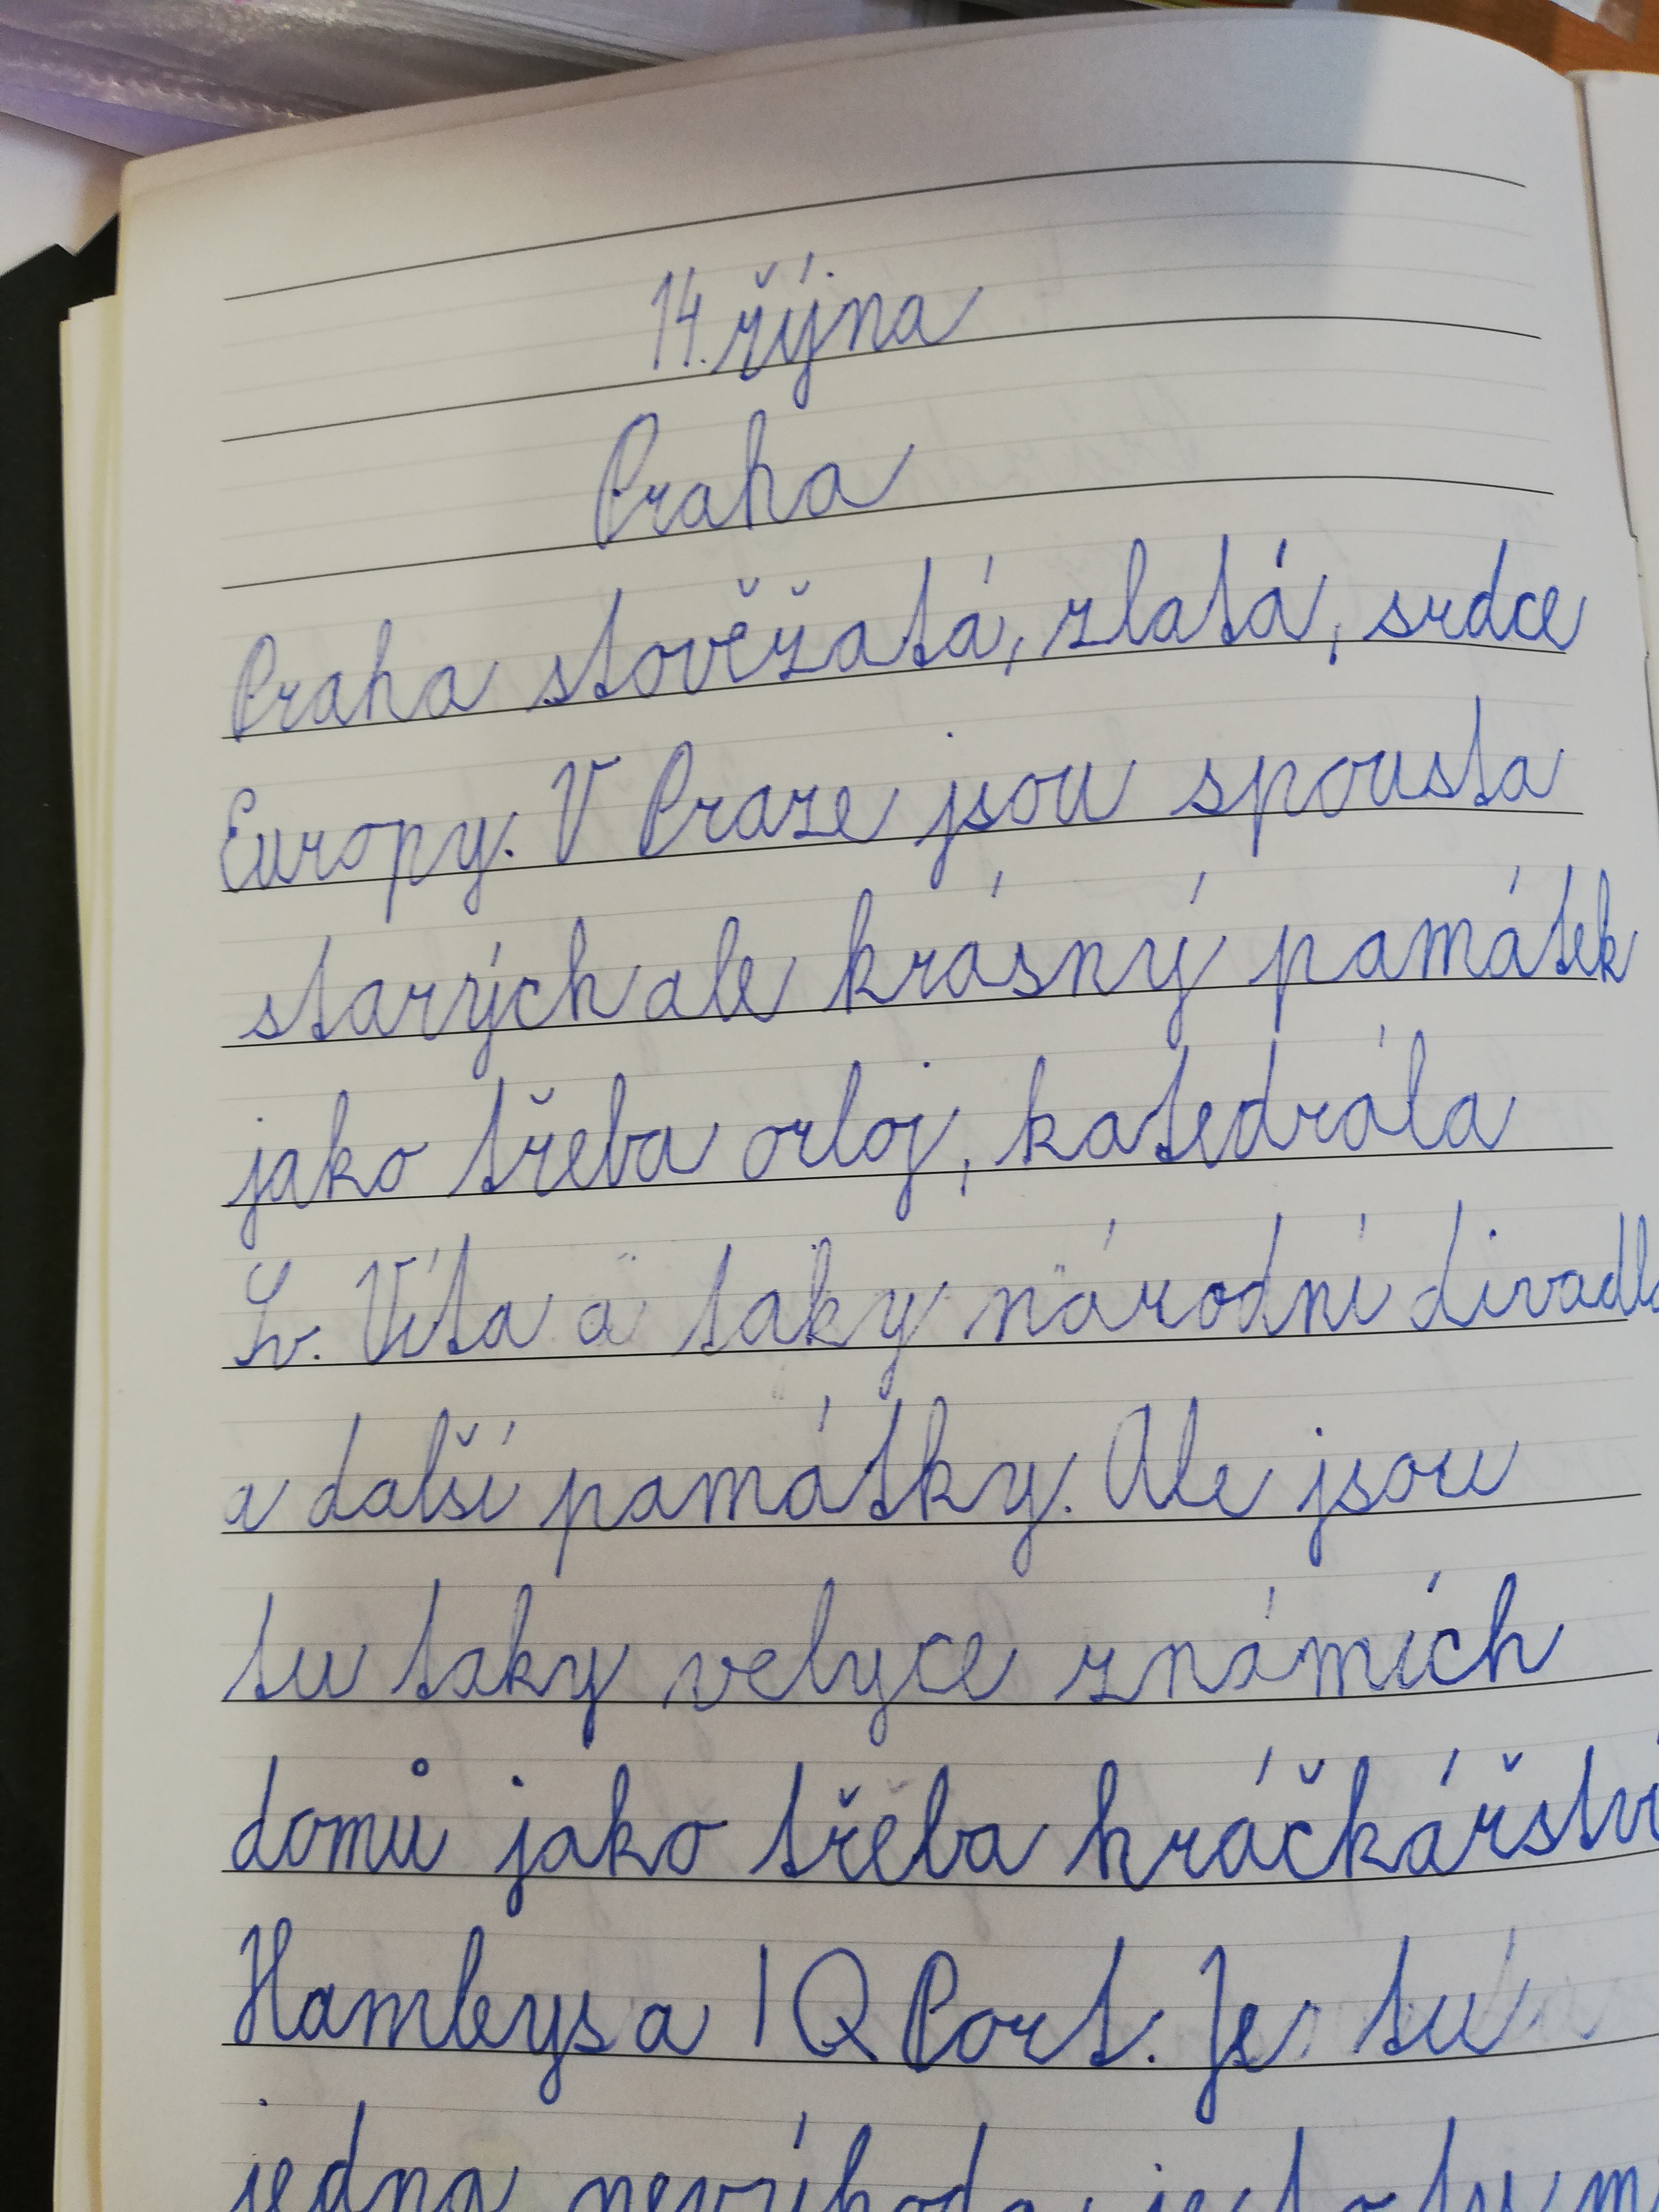 14. řýjna
Praha
Praha stověžatá, zlatá, srdce
Europy. V Praze jsou spousta
starých ale krásný památek
jako třeba orloj, katedrála
Sv. Víta a taky národní divadlo
a další památky. Ale jsou
tu taky velyce známích
domů jako třeba hráčkářství
Hamleys a IQ Port. Je tu
jedna nevýhoda, je to tu